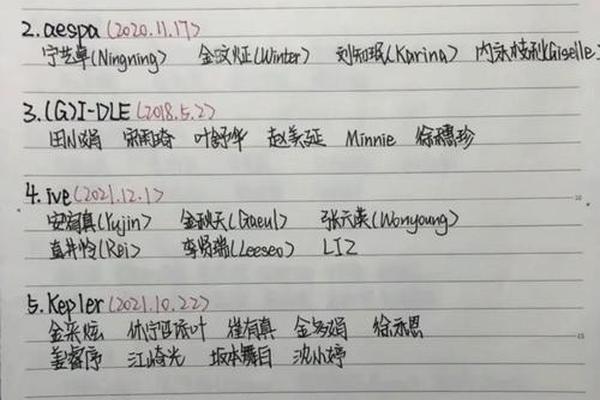 2.aespa(2020.11.17)
宁艺卓(Ningning) 金旼炡(Winter) 刘知珉(Karina) 内永枝利(Giselle)
3.(G)I-DLE(2018.5.2)
田小娟 宋雨琦 叶舒华 赵美延 Minnie 徐穗珍
4.ive(2021.12.1)
安宥真(Yujin) 金秋天(Gaeul) 张元英(Wonyoung)
直井怜(Rei) 李贤瑞(Leeseo) LIZ
5.Kepler(2021.10.22)
金采炫 休宁巴赫叶 崔有真 金多娟 徐永恩
姜睿序 江崎光 坂本舞白 沈小婷
10
15